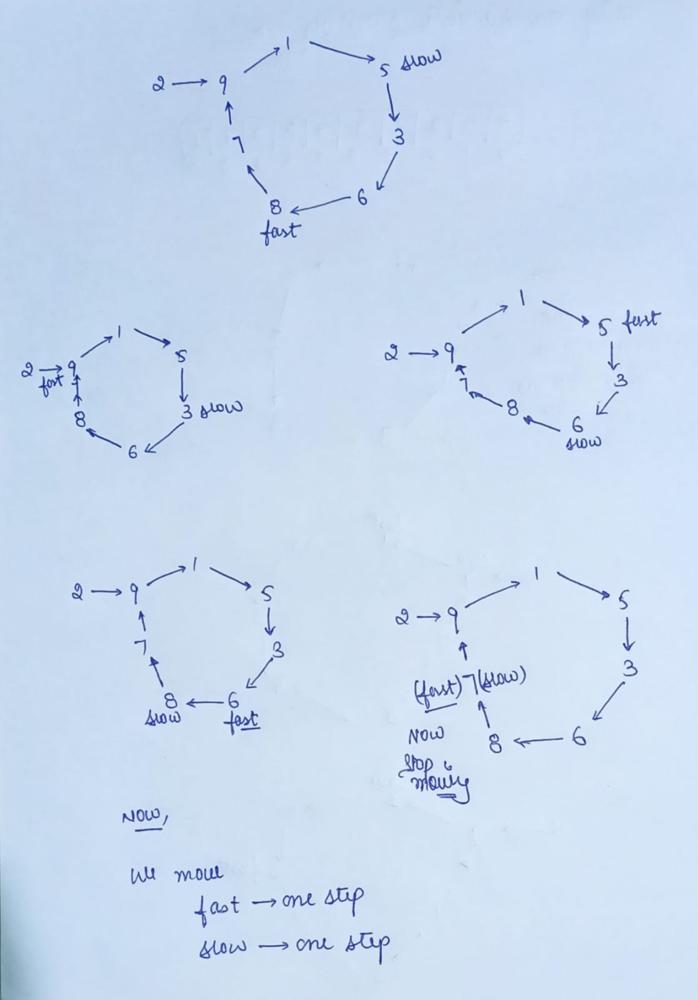 1
5 slow
2 → 9
3
7
6
8
fast
1
2 → 9
fast
5
7
8
3 slow
6
1
5 fast
2 → 9
7
3
8
6
slow
1
2 → 9
5
7
3
8
slow
6
fast
1
2 → 9
5
3
(fast) 7 (slow)
8
6
Now
stop
NOW,
We move
fast → one step
slow → one step